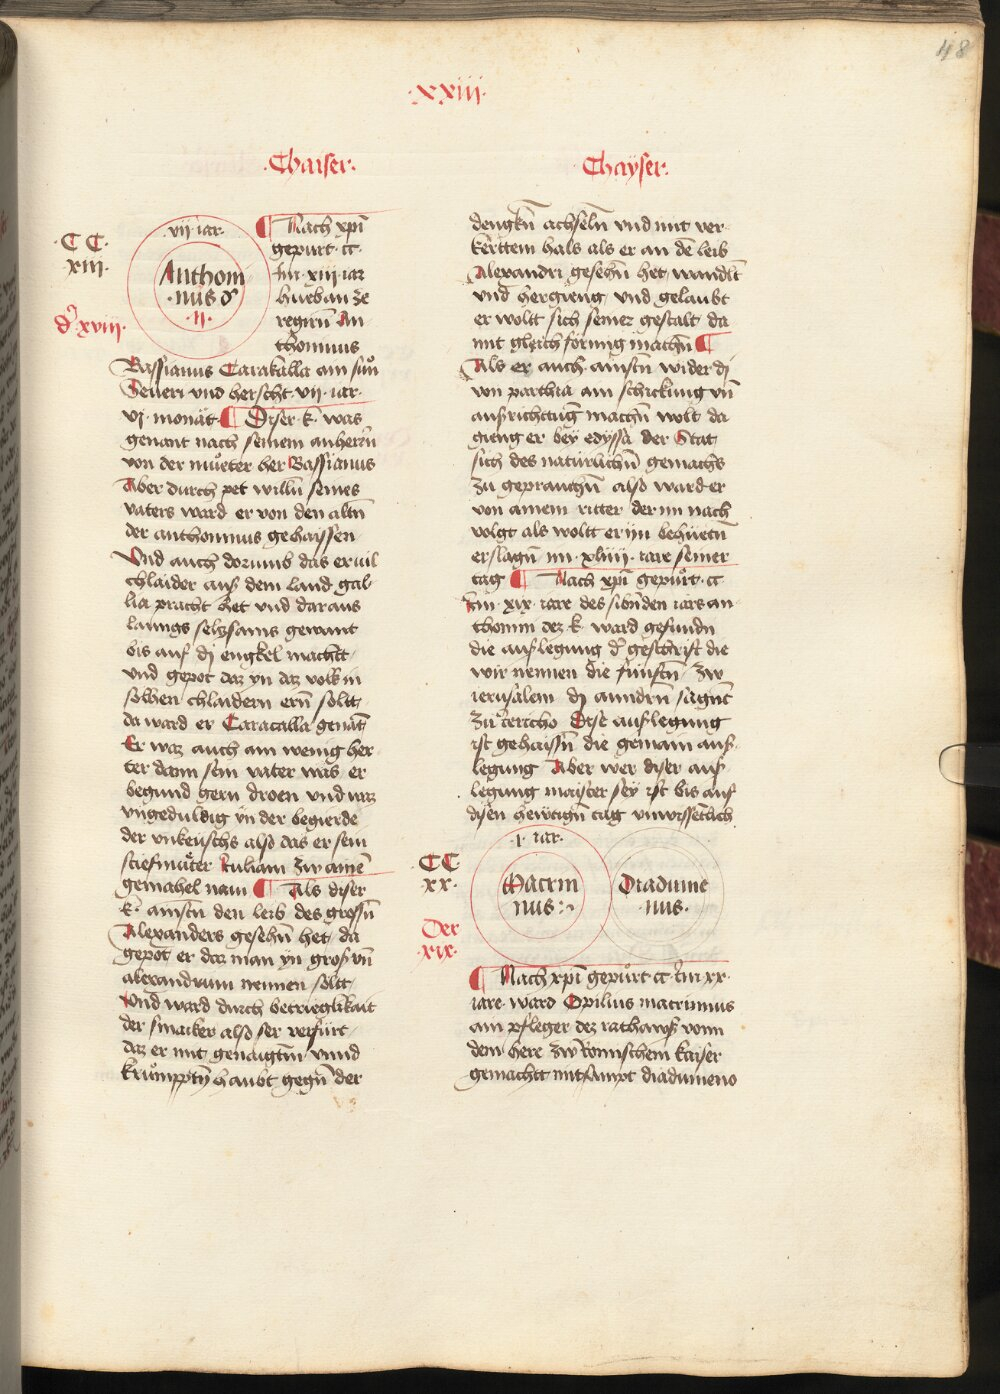 48
·xxiii·
·Chaiser·
·CC·
xiii·
dˢ xviii·
·vii iar·
Anthoni
·nus dˢ
·ii·
¶ Nach xpi̅
gepurt cc
Im xiii iar
hueb an ze
regirn̅ An
thoninus
Bassianus Caracalla ain sun
Seueri vnd herscht vii iar·
vi monat ¶ Diser k· was
genant nach seinem anherrn̅
von der mueter her Bassianus
Aber durch pet willn̅ seines
vaters ward er von den altn̅
der anthoninus gehaissen
Vnd auch dorumb das er vil
chlaider aus dem land gal
lia pracht het vnd dar aus
lanngs selczsams gewant
bis auf di engkel macht
vnd gepot daz yn daz volk in
solhen chlaidern ern̅ solt
da ward er Caracalla gena̅t
Er waz auch ain wenig her
ter dann sein vater was er
begund gern droen vnd waz
vngeduldig in der begierde
der vnkeuschs also das er sein
stiefmuter Iuliam zw aine̅
gemahel nam ¶ Als diser
k· ainstn̅ den leib des grossn̅
Alexanders gesehn̅ het da
gepot er daz man yn gros vn̅
alexandrum nennen solt
Vnd ward durch betrieglikait
der smaiker also ser verfurt
daz er mit genaigtm vnnd
krumpptn̅ haubt gegn̅ der
Chayser·
dengkn̅ achseln̅ vnd mit ver
kerttem hals als er an de̅ leib
Alexandri gesehn̅ het wandlt
vnd hergieng vnd gelaubt
er wolt sich seiner gestalt da
mit gleich formig machn̅ ¶
Als er auch ainstn̅ wider di
von parthia ain schickung vn̅
ausrichtung machn̅ wolt da
gieng er bey edyssa der Stat
sich des naturlichn̅ gemachs
zu geprauchn̅ also ward er
von ainem ritter der im nach
volgt als wolt er yn behuetn̅
erslagn̅ im xliiij iare seiner
tag ¶ Nach xpi̅ gepurt cc
Im xix iare des sibn̅den iars an
thonini dez k· ward gefundn̅
die auslegung dˢ geschrift die
wir nennen die funftn̅ zw
ierusalem di anndrn̅ sagnt
zu Iericho Dise auslegung
ist gehaissn̅ die gemain aus
legung Aber wer diser aus
legung maister sey ist bis auf
disen hewtign̅ tag vnwissetlich
CC·
xx·
Der
·xix·
·i· iar·
Macrin
nus
Diadume
·nus·
¶ Nach xpi̅ gepurt cc Im xx·
iare ward Opilius macrinnus
ain pfleger dez rathaws vonn
dem here zw romischem kaiser
gemacht mitsampt diadumeno